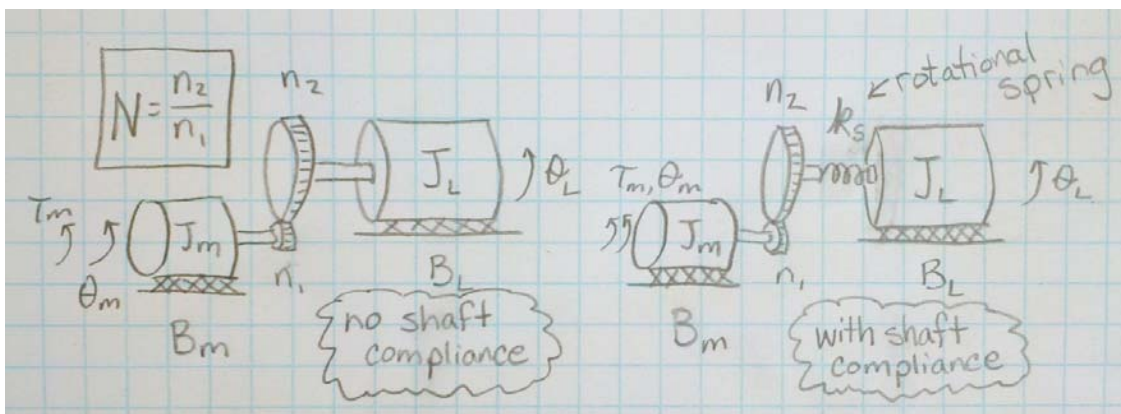 N = n₂/n₁
n₂
J_L
θ_L
T_m
θ_m
J_m
n₁
B_m
B_L
no shaft
compliance
n₂
← rotational
spring
k_s
T_m, θ_m
J_m
J_L
θ_L
n₁
B_m
B_L
with shaft
compliance